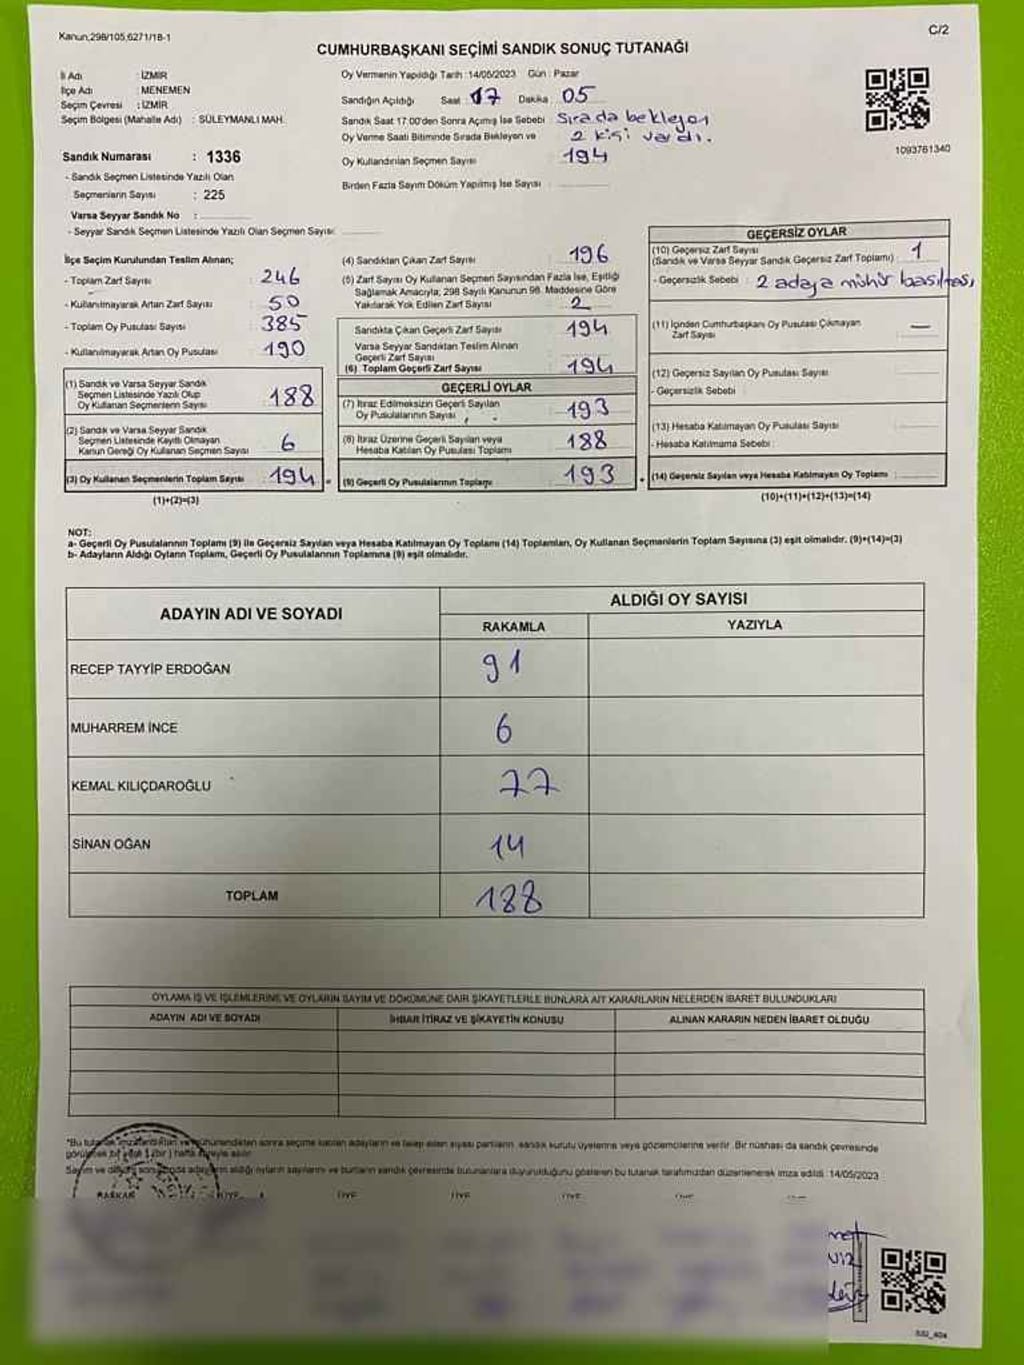 Kanun;298/105,6271/18-1
C/2
CUMHURBAŞKANI SEÇİMİ SANDIK SONUÇ TUTANAĞI
İl Adı : İZMİR
İlçe Adı : MENEMEN
Seçim Çevresi : İZMİR
Seçim Bölgesi (Mahalle Adı) : SÜLEYMANLI MAH.
Sandık Numarası : 1336
- Sandık Seçmen Listesinde Yazılı Olan
Seçmenlerin Sayısı : 225
Varsa Seyyar Sandık No :
- Seyyar Sandık Seçmen Listesinde Yazılı Olan Seçmen Sayısı:
Oy Vermenin Yapıldığı Tarih :14/05/2023 Gün : Pazar
Sandığın Açıldığı Saat : 17 Dakika : 05
Sandık Saat 17:00'den Sonra Açılmış İse Sebebi : Sırada bekleyen
Oy Verme Saati Bitiminde Sırada Bekleyen ve 2 kişi vardı.
Oy Kullandırılan Seçmen Sayısı : 194
Birden Fazla Sayım Döküm Yapılmış İse Sayısı :
1093761340
İlçe Seçim Kurulundan Teslim Alınan;
- Toplam Zarf Sayısı : 246
- Kullanılmayarak Artan Zarf Sayısı : 50
- Toplam Oy Pusulası Sayısı : 385
- Kullanılmayarak Artan Oy Pusulası : 190
(1) Sandık ve Varsa Seyyar Sandık
Seçmen Listesinde Yazılı Olup
Oy Kullanan Seçmenlerin Sayısı : 188
(2) Sandık ve Varsa Seyyar Sandık
Seçmen Listesinde Kayıtlı Olmayan
Kanun Gereği Oy Kullanan Seçmen Sayısı : 6
(3) Oy Kullanan Seçmenlerin Toplam Sayısı : 194
(1)+(2)=(3)
(4) Sandıktan Çıkan Zarf Sayısı : 196
(5) Zarf Sayısı Oy Kullanan Seçmen Sayısından Fazla İse, Eşitliği
Sağlamak Amacıyla; 298 Sayılı Kanunun 98. Maddesine Göre
Yakılarak Yok Edilen Zarf Sayısı : 2
Sandıkta Çıkan Geçerli Zarf Sayısı : 194
Varsa Seyyar Sandıktan Teslim Alınan
Geçerli Zarf Sayısı
(6) Toplam Geçerli Zarf Sayısı : 194
GEÇERLİ OYLAR
(7) İtiraz Edilmeksizin Geçerli Sayılan
Oy Pusulalarının Sayısı : 193
(8) İtiraz Üzerine Geçerli Sayılan veya
Hesaba Katılan Oy Pusulası Toplamı : 188
(9) Geçerli Oy Pusulalarının Toplamı : 193
GEÇERSİZ OYLAR
(10) Geçersiz Zarf Sayısı
(Sandık ve Varsa Seyyar Sandık Geçersiz Zarf Toplamı) : 1
- Geçersizlik Sebebi : 2 adaya mühür basılması
(11) İçinden Cumhurbaşkanı Oy Pusulası Çıkmayan
Zarf Sayısı : —
(12) Geçersiz Sayılan Oy Pusulası Sayısı :
- Geçersizlik Sebebi :
(13) Hesaba Katılmayan Oy Pusulası Sayısı :
- Hesaba Katılmama Sebebi :
(14) Geçersiz Sayılan veya Hesaba Katılmayan Oy Toplamı :
(10)+(11)+(12)+(13)=(14)
NOT:
a- Geçerli Oy Pusulalarının Toplamı (9) ile Geçersiz Sayılan veya Hesaba Katılmayan Oy Toplamı (14) Toplamları, Oy Kullanan Seçmenlerin Toplam Sayısına (3) eşit olmalıdır. (9)+(14)=(3)
b- Adayların Aldığı Oyların Toplamı, Geçerli Oy Pusulalarının Toplamına (9) eşit olmalıdır.
ADAYIN ADI VE SOYADI
ALDIĞI OY SAYISI
RAKAMLA YAZIYLA
RECEP TAYYİP ERDOĞAN 91
MUHARREM İNCE 6
KEMAL KILIÇDAROĞLU 77
SİNAN OĞAN 14
TOPLAM 188
OYLAMA İŞ VE İŞLEMLERİNE VE OYLARIN SAYIM VE DÖKÜMÜNE DAİR ŞİKAYETLERLE BUNLARA AİT KARARLARIN NELERDEN İBARET BULUNDUKLARI
ADAYIN ADI VE SOYADI İHBAR İTİRAZ VE ŞİKAYETİN KONUSU ALINAN KARARIN NEDEN İBARET OLDUĞU
*Bu tutanak imzalandıktan ve mühürlendikten sonra seçime katılan adayların ve talep eden siyasi partilerin sandık kurulu üyelerine veya gözlemcilerine verilir. Bir nüshası da sandık çevresinde
görülecek bir yere 1 (bir) hafta süreyle asılır.
Sayım ve döküm sonunda adayların aldığı oyların sayılarını ve bunların sandık çevresinde bulunanlara duyurulduğunu gösteren bu tutanak tarafımızdan düzenlenerek imza edildi. 14/05/2023
BAŞKAN ÜYE ÜYE ÜYE ÜYE